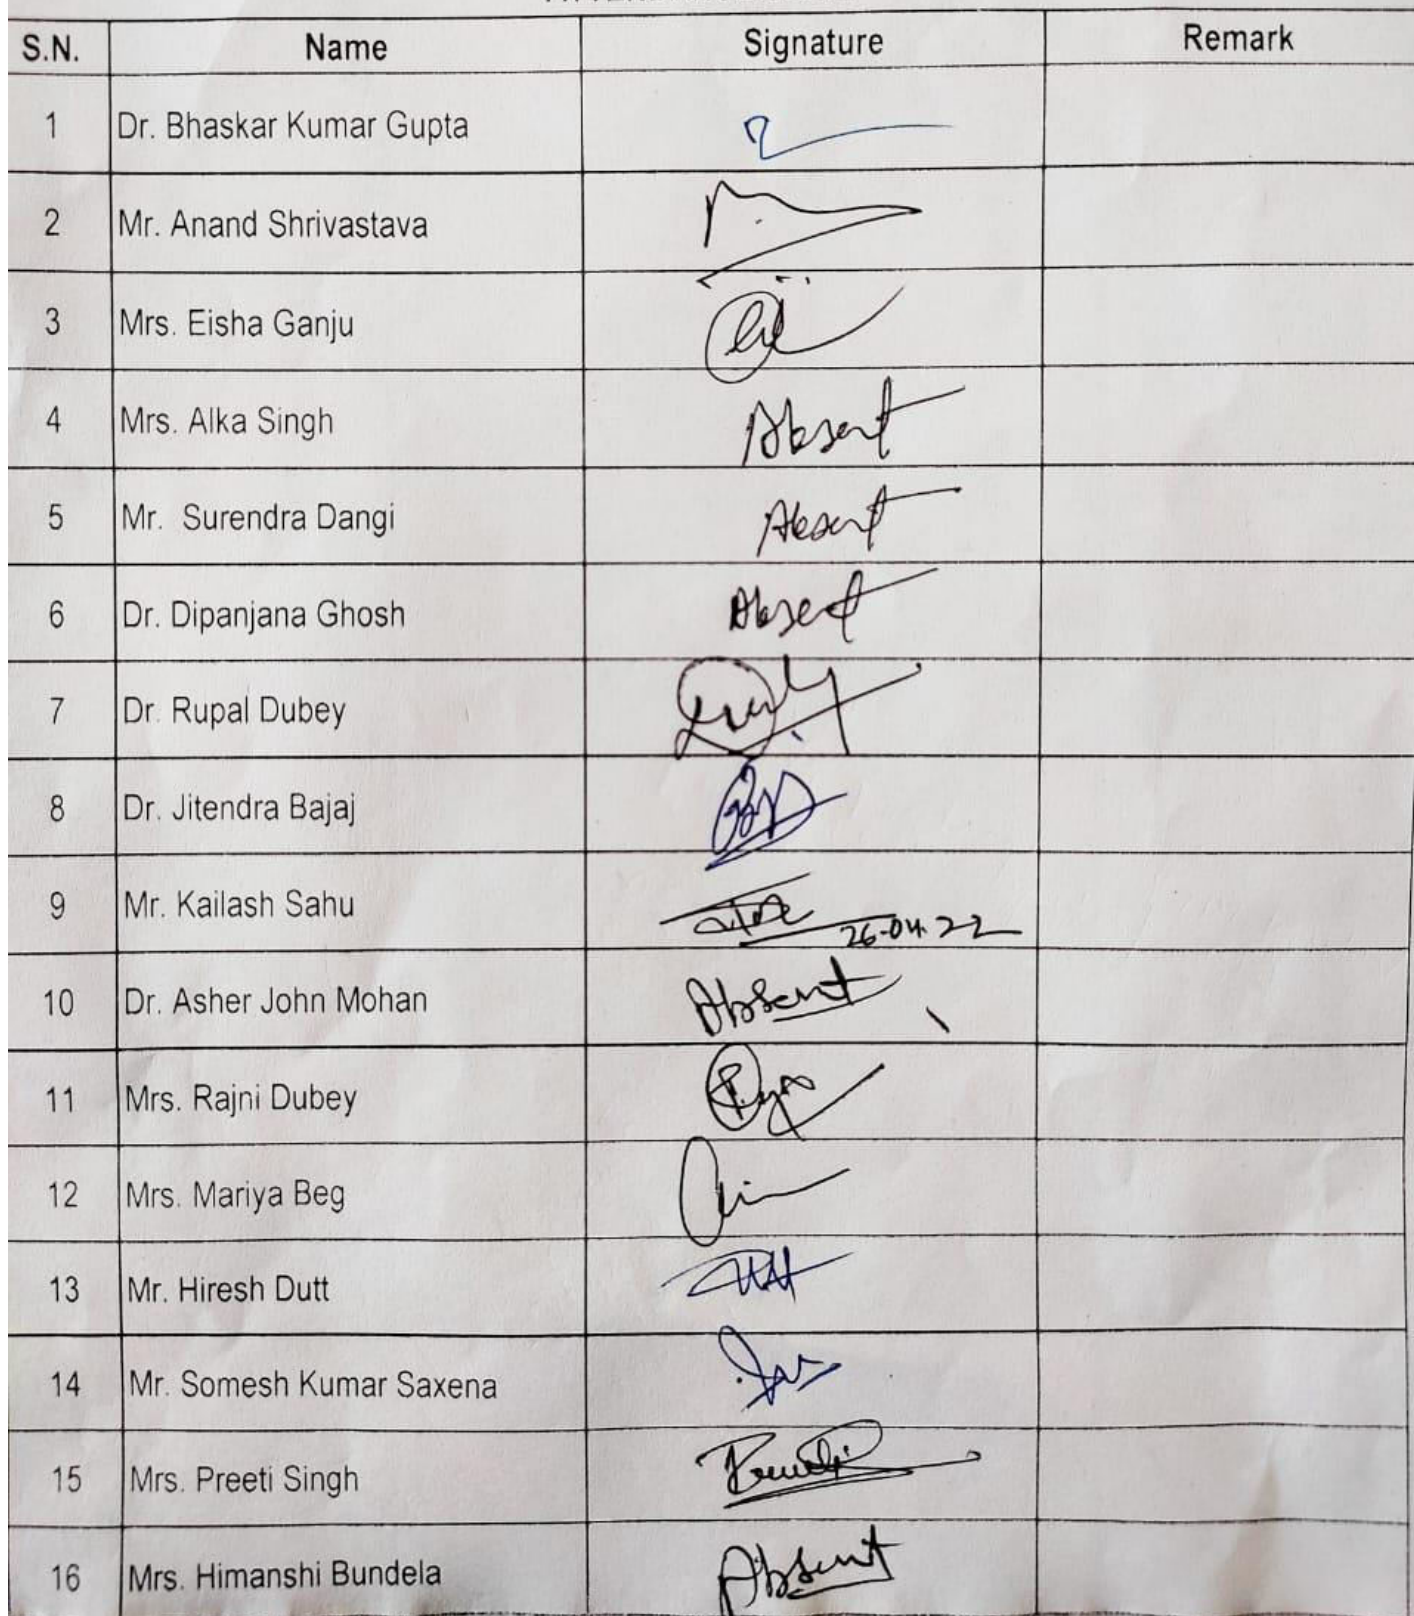 S.N. Name Signature Remark
1 Dr. Bhaskar Kumar Gupta
2 Mr. Anand Shrivastava
3 Mrs. Eisha Ganju
4 Mrs. Alka Singh Absent
5 Mr. Surendra Dangi Absent
6 Dr. Dipanjana Ghosh Absent
7 Dr. Rupal Dubey
8 Dr. Jitendra Bajaj
9 Mr. Kailash Sahu 26-04-22
10 Dr. Asher John Mohan Absent
11 Mrs. Rajni Dubey
12 Mrs. Mariya Beg
13 Mr. Hiresh Dutt
14 Mr. Somesh Kumar Saxena
15 Mrs. Preeti Singh
16 Mrs. Himanshi Bundela Absent